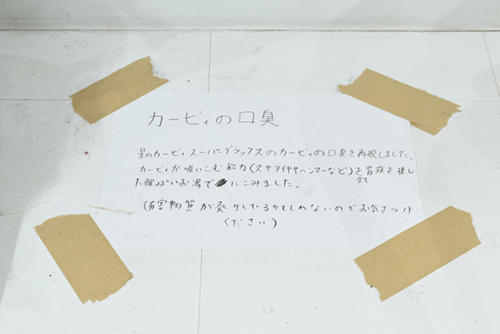 カービィの口臭
星のカービィスーパーデラックスのカービィの口臭を再現しました。
カービィが吸いこむ能力(犬やタイヤやハンマーなど)を胃液を模し
た酸っぱいお湯でにこみました。
(有害物質が発生しているかもしれないのでお気をつけ
ください)